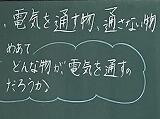 ・電気を通す物、通さない物
めあて
どんな物が、電気を通すの
だろうか。